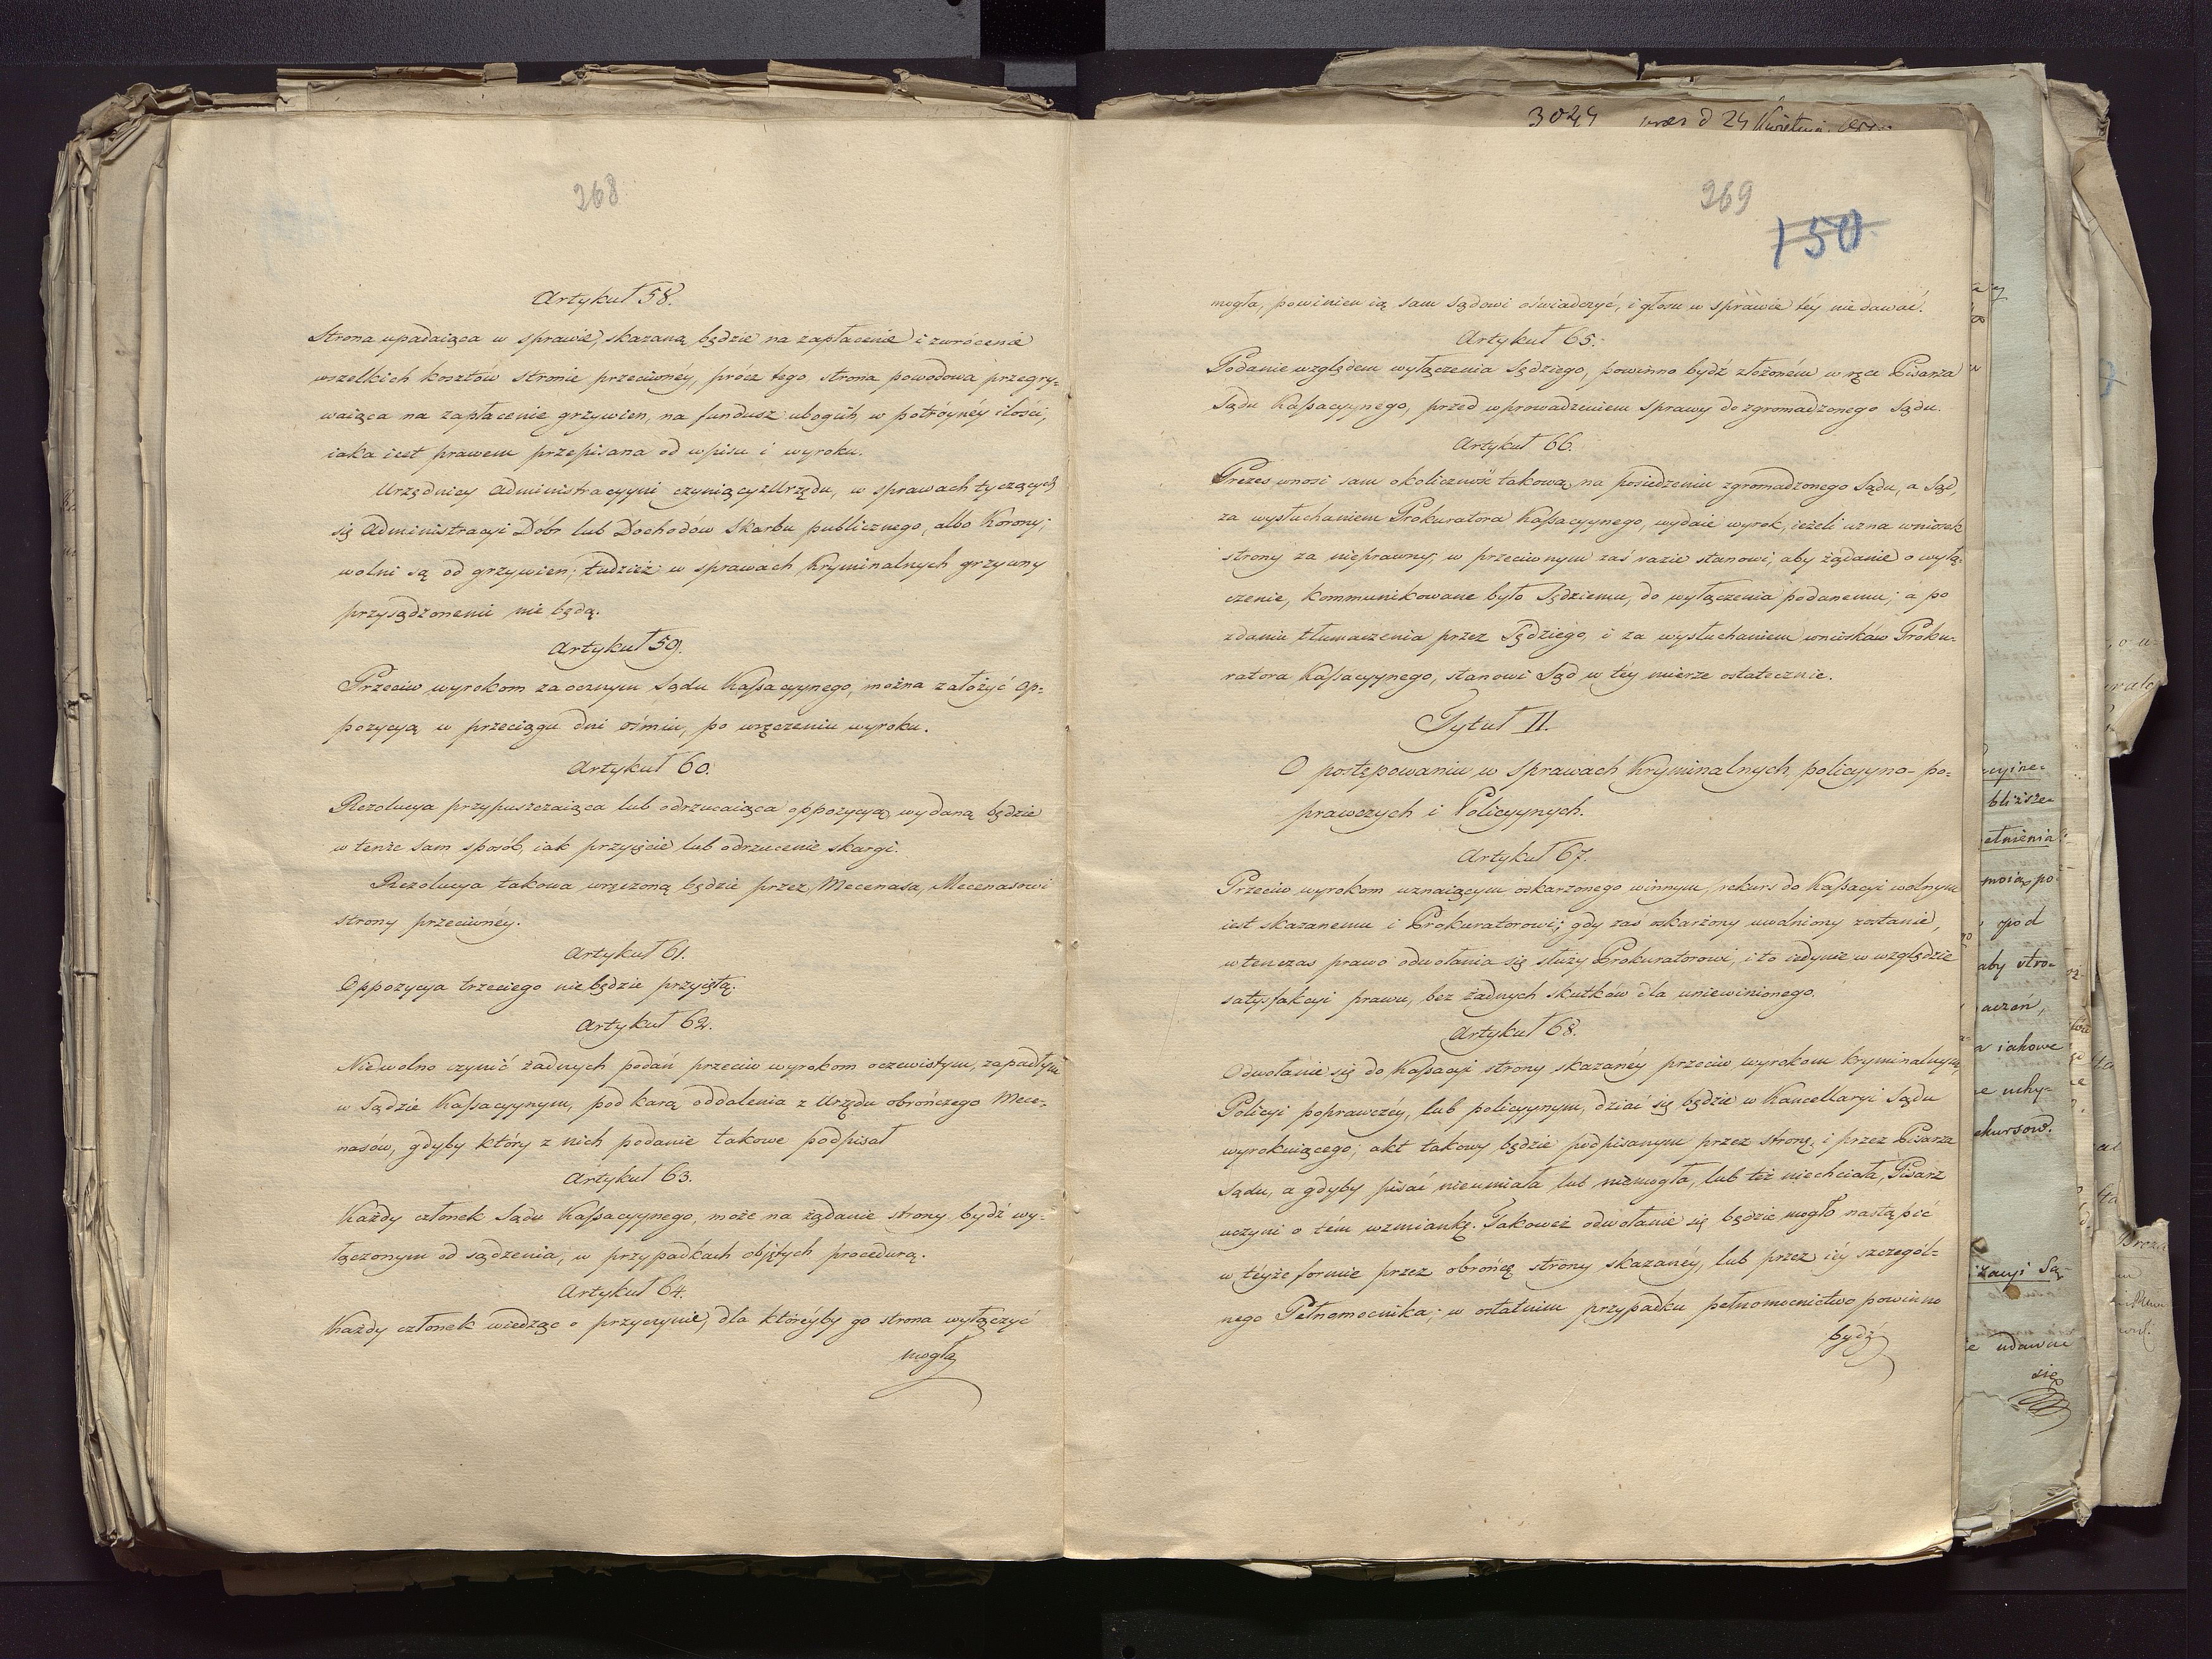 268
Artykuł 58.
Strona upadaiąca w sprawie, skazaną będzie na zapłacenie i zwrócenie
wszelkich kosztów stronie przeciwnéy, prócz tego, strona powodowa przegry-
waiąca na zapłacenie grzywien, na fundusz ubogich, w potróynéy ilości,
iaka iest prawem przepisana od wpisu i wyroku.
Urzędnicy Administracyyni czyniący z Urzędu, w sprawach tyczących
się Administracyi Dobr lub Dochodów Skarbu publicznego, albo Korony,
wolni są od grzywien; tudzież w sprawach Kryminalnych grzywny
przysądzonemi nie będą.
Artykuł 59.
Przeciw wyrokom zaocznym Sądu Kassacyynego, można założyć op-
pozycyą w przeciągu dni ośmiu, po wręczeniu wyroku.
Artykuł 60.
Rezolucya przypuszczaiąca lub odrzucaiąca oppozycyą wydaną będzie
w tenże sam sposób, iak przyięcie lub odrzucenie skargi.
Rezolucya takowa wręczoną będzie przez Mecenasa, Mecenasowi
strony przeciwnéy.
Artykuł 61.
Oppozycya trzeciego nie będzie przyiętą.
Artykuł 62.
Niewolno czynić żadnych podań przeciw wyrokom oczewistym, zapadłym
w Sądzie Kassacyynym, pod karą oddalenia z Urzędu obrończego Mece-
nasów, gdyby który z nich podanie takowe podpisał
Artykuł 63.
Każdy członek Sądu Kassacyynego, może na żądanie strony bydź wy-
łączonym od sądzenia, w przypadkach obiętych procedurą.
Artykuł 64.
Każdy członek wiedząc o przyczynie, dla któréyby go strona wyłączyć
mogła
3024 d 24 Kwietnia
269
150
mogła, powinien ią sam Sądowi oświadczyć, i głosu w sprawie téy nie dawać.
Artykuł 65.
Podanie względem wyłączenia Sędziego, powinno bydź złożoném w ręce Pisarza
Sądu Kassacyynego, przed wprowadzeniem sprawy do zgromadzonego Sądu.
Artykuł 66.
Prezes wnosi sam okoliczność takową na posiedzeniu zgromadzonego Sądu, a Sąd,
za wysłuchaniem Prokuratora Kassacyynego, wydaie wyrok, ieżeli uzna wniosek
strony za nieprawny; w przeciwnym zaś razie stanowi, aby żądanie o wyłą-
czenie, kommunikowane było Sędziemu, do wyłączenia podanemu; a po
zdaniu tłumaczenia przez Sędziego, i za wysłuchaniem wniosków Proku-
ratora Kassacyynego, stanowi Sąd w téy mierze ostatecznie.
Tytuł II.
O postępowaniu w sprawach Kryminalnych, policyyno-po-
prawczych i Policyynych.
Artykuł 67.
Przeciw wyrokom uznaiącym oskarżonego winnym, rekurs do Kassacyi wolnym
iest skazanemu i Prokuratorowi; gdy zaś oskarżony uwolniony zostanie,
wtenczas prawo odwołania się służy Prokuratorowi, i to iedynie w względzie
satysfakcyi prawu, bez żadnych skutków dla uniewinionego.
Artykuł 68.
Odwołanie się do Kassacyi strony skazanéy przeciw wyrokom kryminalnym,
Policyi poprawczéy, lub policyynym, dziać się będzie w Kancellaryi Sądu
wyrokuiącego, akt takowy będzie podpisanym przez stronę, i przez Pisarza
Sądu, a gdyby pisać nieumiała lub niemogła, lub też niechciała, Pisarz
uczyni o tém wzmiankę. Takoweż odwołanie się będzie mogło nastąpić
w téyże formie przez obrońcę strony skazanéy, lub przez iéy szczegól-
nego Pełnomocnika; w ostatnim przypadku pełnomocnictwo powinno
bydź
bliższe
pod
aby stro-
iakowe
uchy-
udawać
się